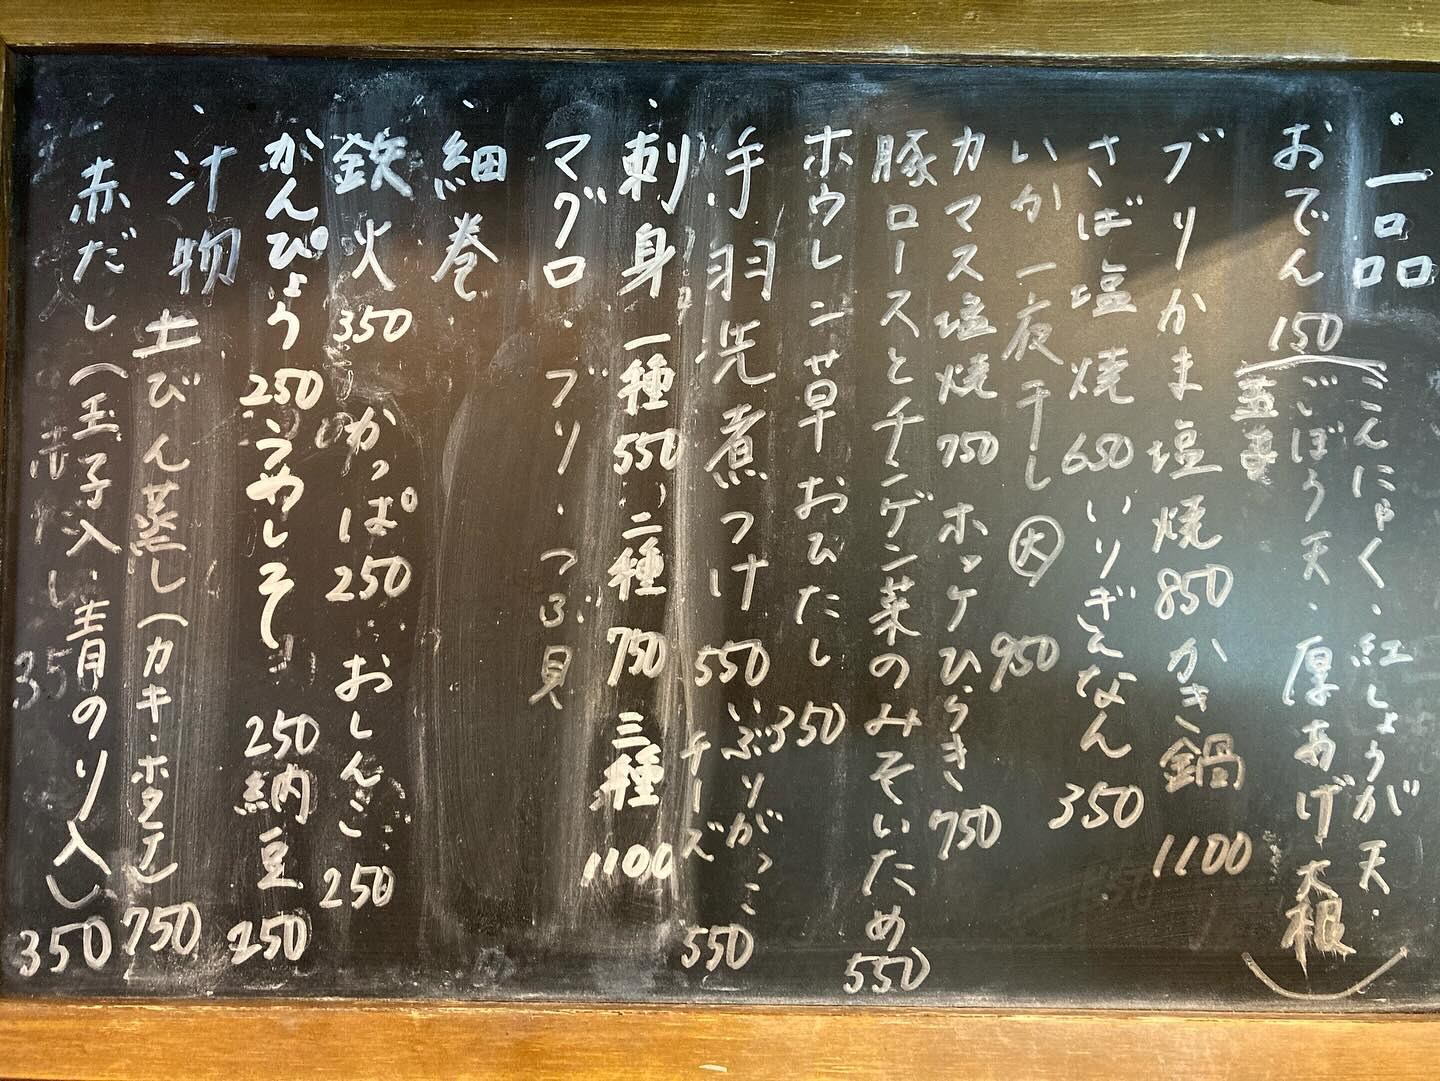 ・一品
おでん 150
こんにゃく・紅しょうが天・
ごぼう天・厚あげ 大根
ブリかま塩焼 850 かき鍋 1100
さば塩焼 650 いりぎんなん 350
いか一夜干し 大 950
カマス塩焼 750 ホッケひらき 750
豚ロースとチンゲン菜のみそいため 550
ホウレン草おひたし 350
手羽先煮つけ 550 いぶりがっこチーズ 550
・刺身 一種 550 二種 750 三種 1100
マグロ・ブリ・つぶ貝
・細巻
鉄火 350 かっぱ 250 おしんこ 250
かんぴょう 250 うめしそ 250 納豆 250
・汁物 土びん蒸し(カキ・ホタテ) 750
赤だし(玉子入い 青のり入) 350